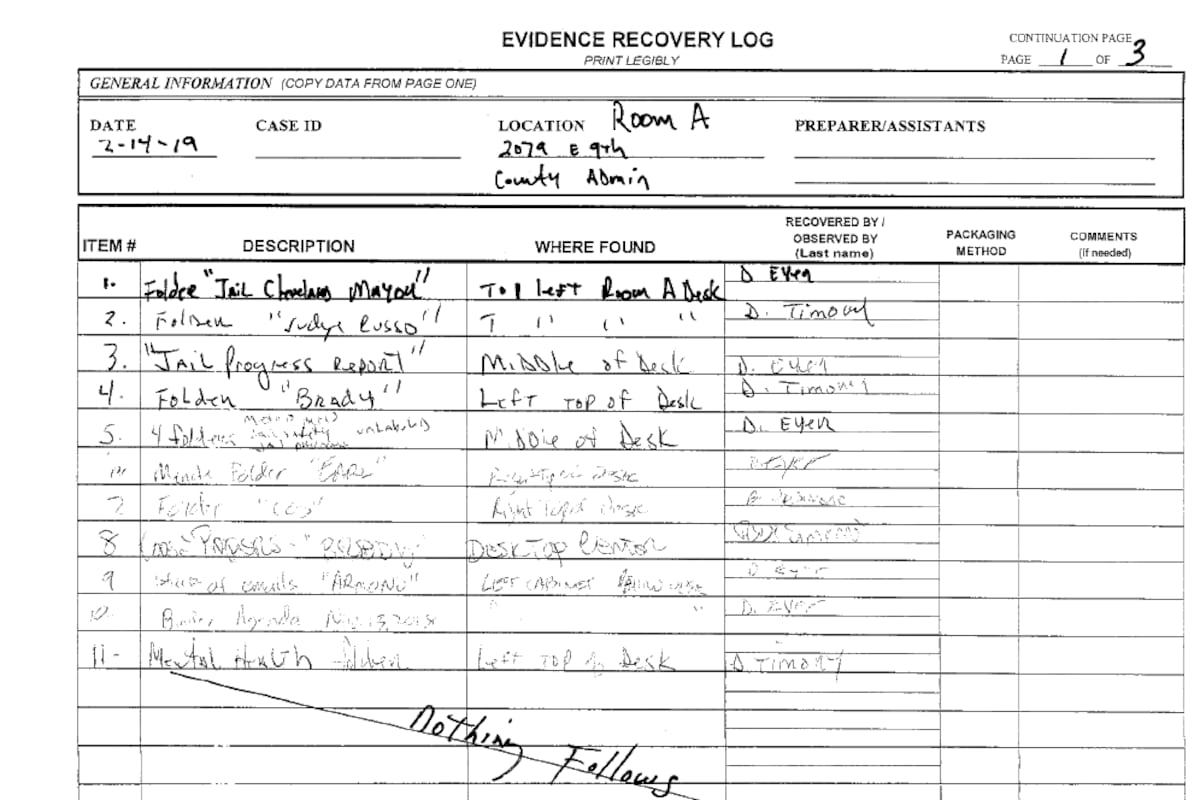 EVIDENCE RECOVERY LOG
PRINT LEGIBLY
CONTINUATION PAGE
PAGE 1 OF 3
GENERAL INFORMATION (COPY DATA FROM PAGE ONE)
DATE CASE ID LOCATION Room A PREPARER/ASSISTANTS
2-14-19 2079 E 9th
County Admin
ITEM # DESCRIPTION WHERE FOUND RECOVERED BY / OBSERVED BY (Last name) PACKAGING METHOD COMMENTS (if needed)
1. Folder "Jail Cleveland Mayor" Top left Room A Desk D. Eyer
2. Folder "Judge Russo" T " " " D. Timony
3. "Jail Progress Report" Middle of Desk D. Eyer
4. Folder "Brady" Left top of Desk D. Timony
5. 4 folders unlabeled Middle of Desk D. Eyer
Folder
7 Folder "COS" Right Top of
8 Loose Papers - Desk Top Center
9 of emails "ARMOND" Left Cabinet D. Eyer
10. Agenda " " D. Eyer
11- Mental Health folder Left top of Desk D. Timony
Nothing Follows